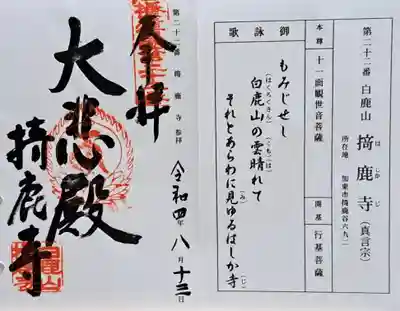 第二十二番 白鹿山
掎鹿寺(真言宗)
はしかじ
所在地 加東市掎鹿谷六九二
本尊 十一面観世音菩薩
開基 行基菩薩
御詠歌
もみじせし
白鹿山の雲晴れて
(はくろくさん)
それとあらわに見ゆるはしか寺
(み)
(じ)
第二十二番 掎鹿寺 参拝
令和四年八月十三日
奉拝
大悲殿
掎鹿寺